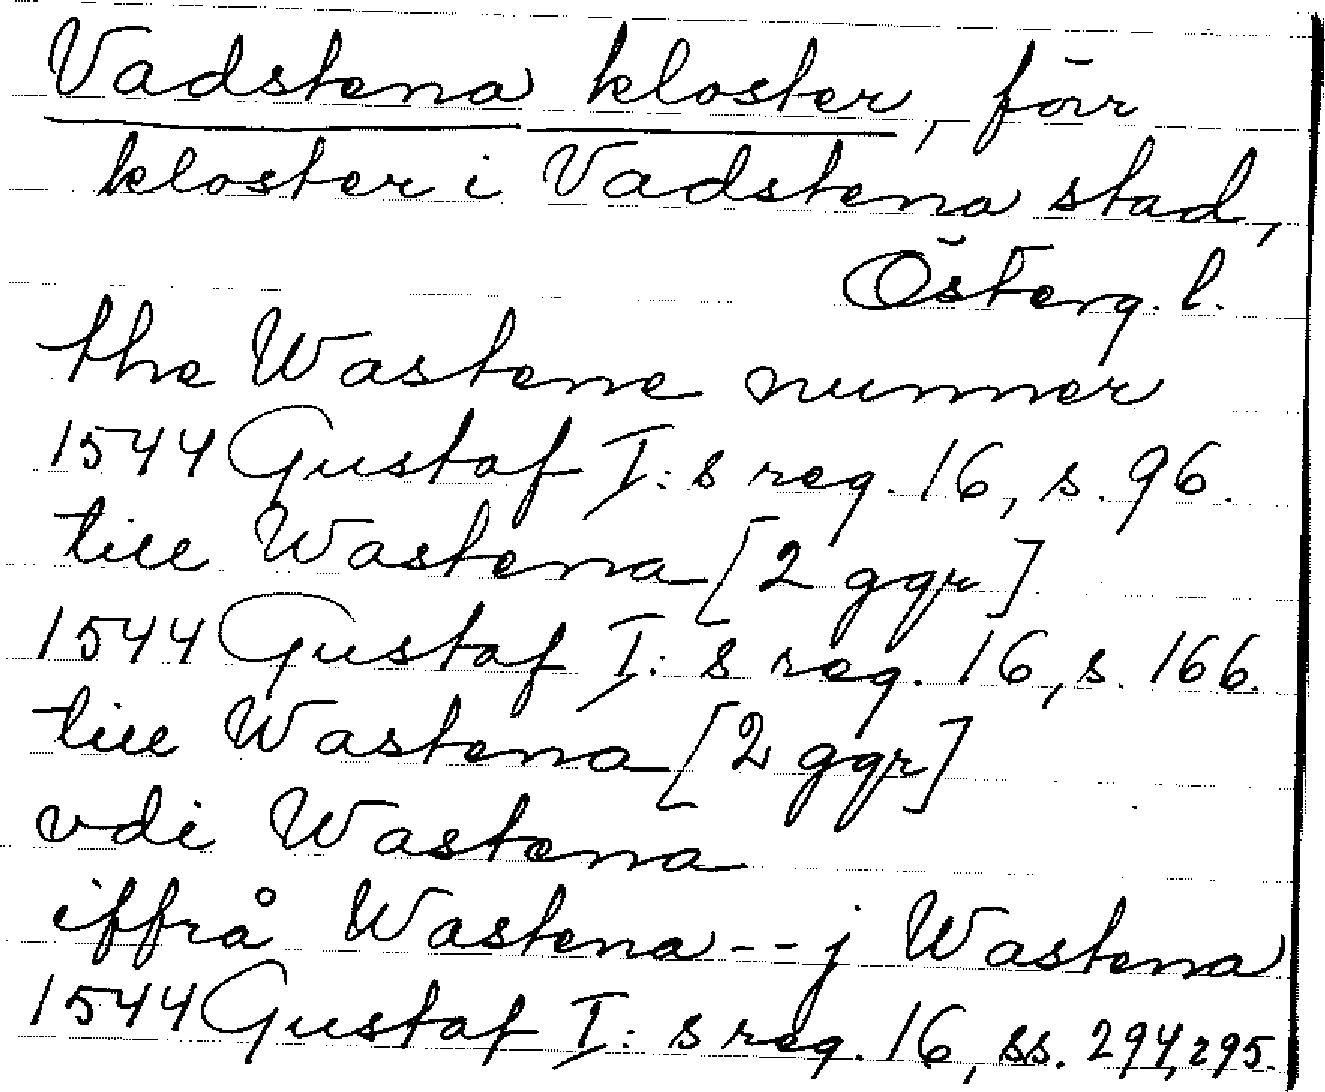 Vadstena kloster, förr
kloster i Vadstena stad,
Österg. l.
the Wastene nunner
1544 Gustaf I:s reg. 16, s. 96.
till Wastena [2 ggr]
1544 Gustaf I:s reg. 16, s. 166.
till Wastena [2 ggr]
vdi Wastena
iffrå Wastena -- j Wastena
1544 Gustaf I:s reg. 16, ss. 294, 295.